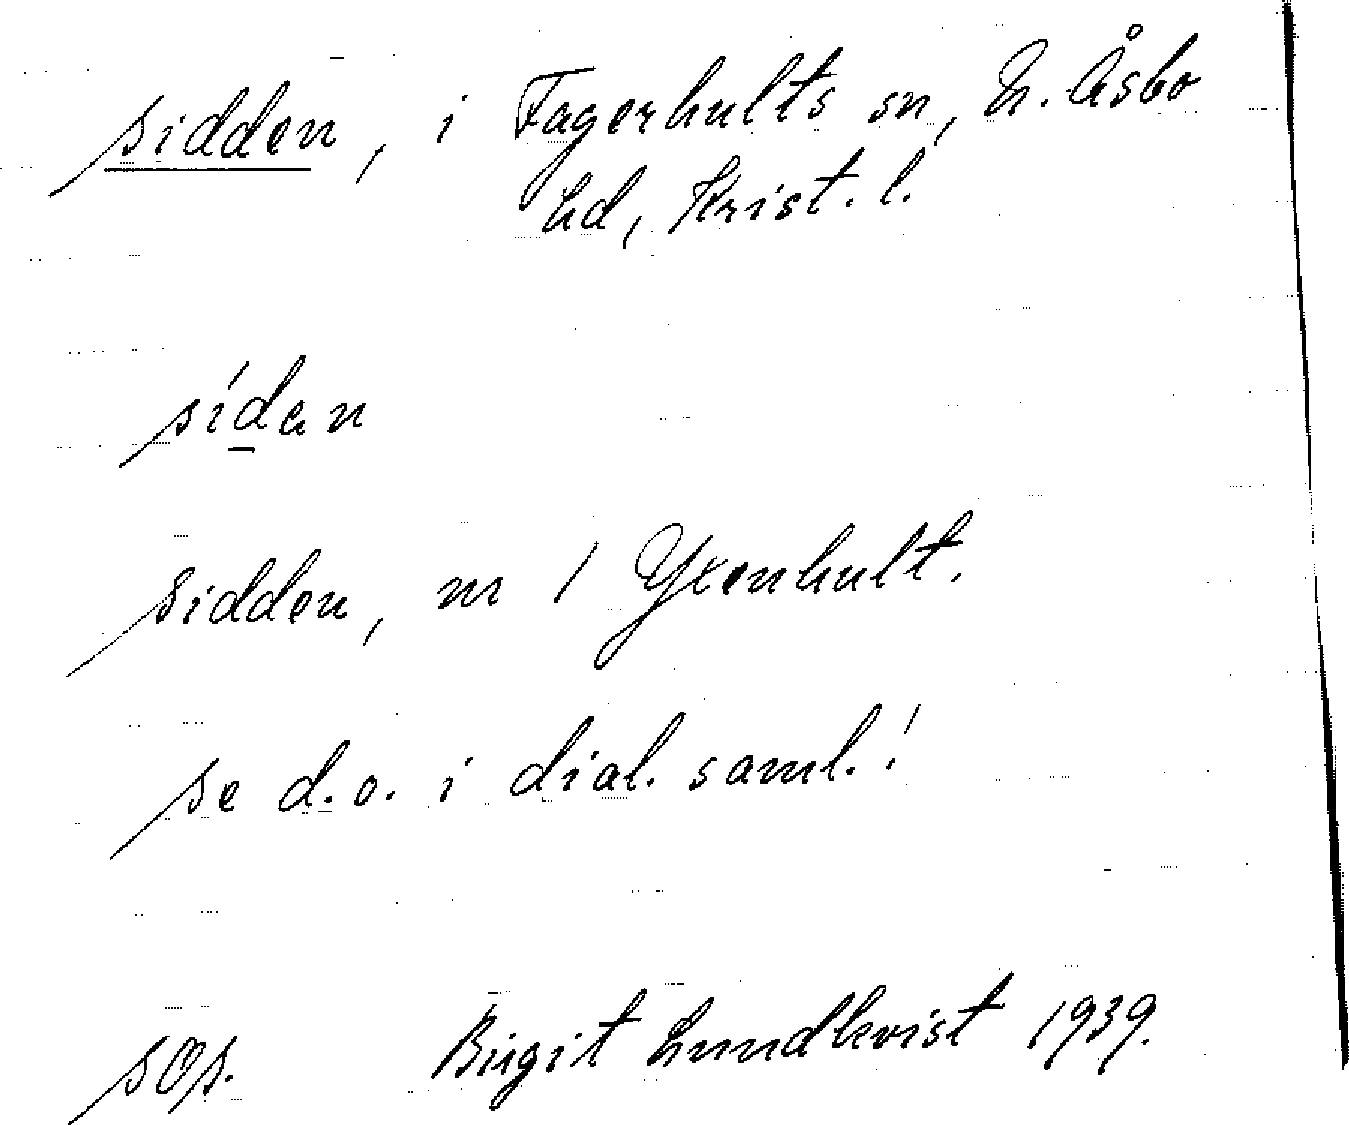 sidden, i Fagerhults sn, N. Åsbo
hd, Krist. l.
sídan
sidden, nr 1 Yxenhult.
se d.o. i dial. saml.!
sOs. Birgit Lundkvist 1939.